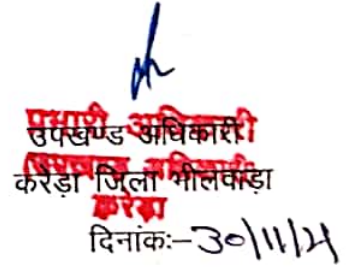 प्रभारी अधिकारी
उपखण्ड अधिकारी
उपखण्ड अधिकारी
करेड़ा जिला भीलवाड़ा
करेड़ा
दिनांकः-30/11/21